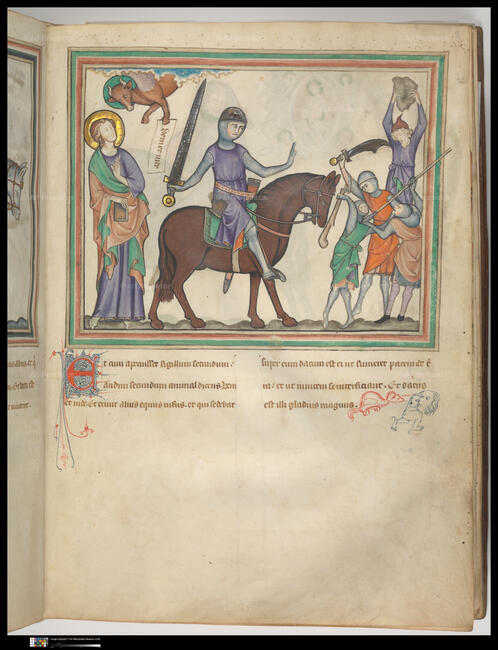 Veni et vide
Et cum aperuisset sigillum secundum:
audivi secundum animal dicens Veni
et vide. Et exivit alius equus rufus. et qui sedebat
super eum datum est ei ut sumeret pacem de t̄
ra: et ut invicem se interficiant. Et datus
est illi gladius magnus.